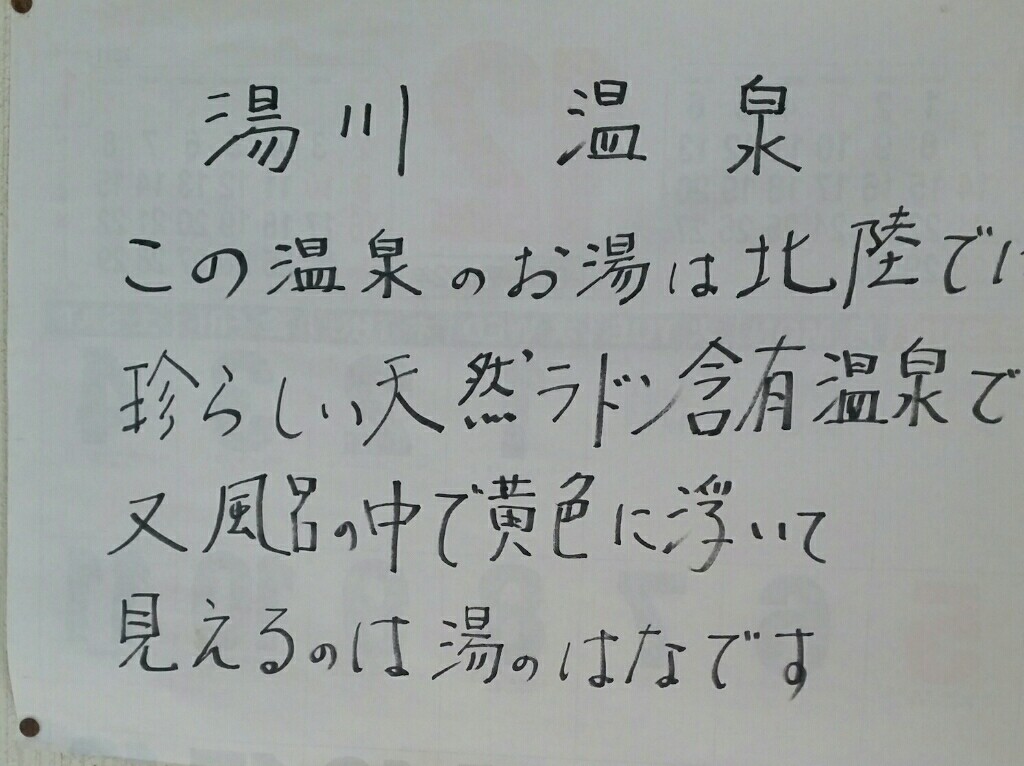 湯川 温泉
この温泉のお湯は北陸では
珍らしい天然ラドン含有温泉で
又風呂の中で黄色に浮いて
見えるのは湯のはなです